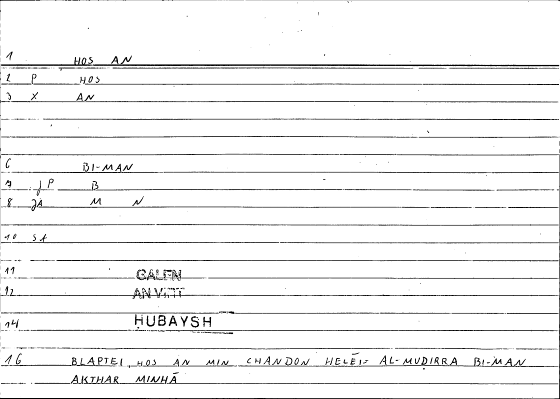 1 HOS AN
2 P HOS
3 X AN
6 BI-MAN
7 JP B
8 JA M N
10 SA
11 GALEN
12 AN VIRT
14 HUBAYSH
16 BLAPTEI HOS AN MIN CHANDON HELĒI= AL-MUḌIRRA BI-MAN
AKTHAR MINHĀ